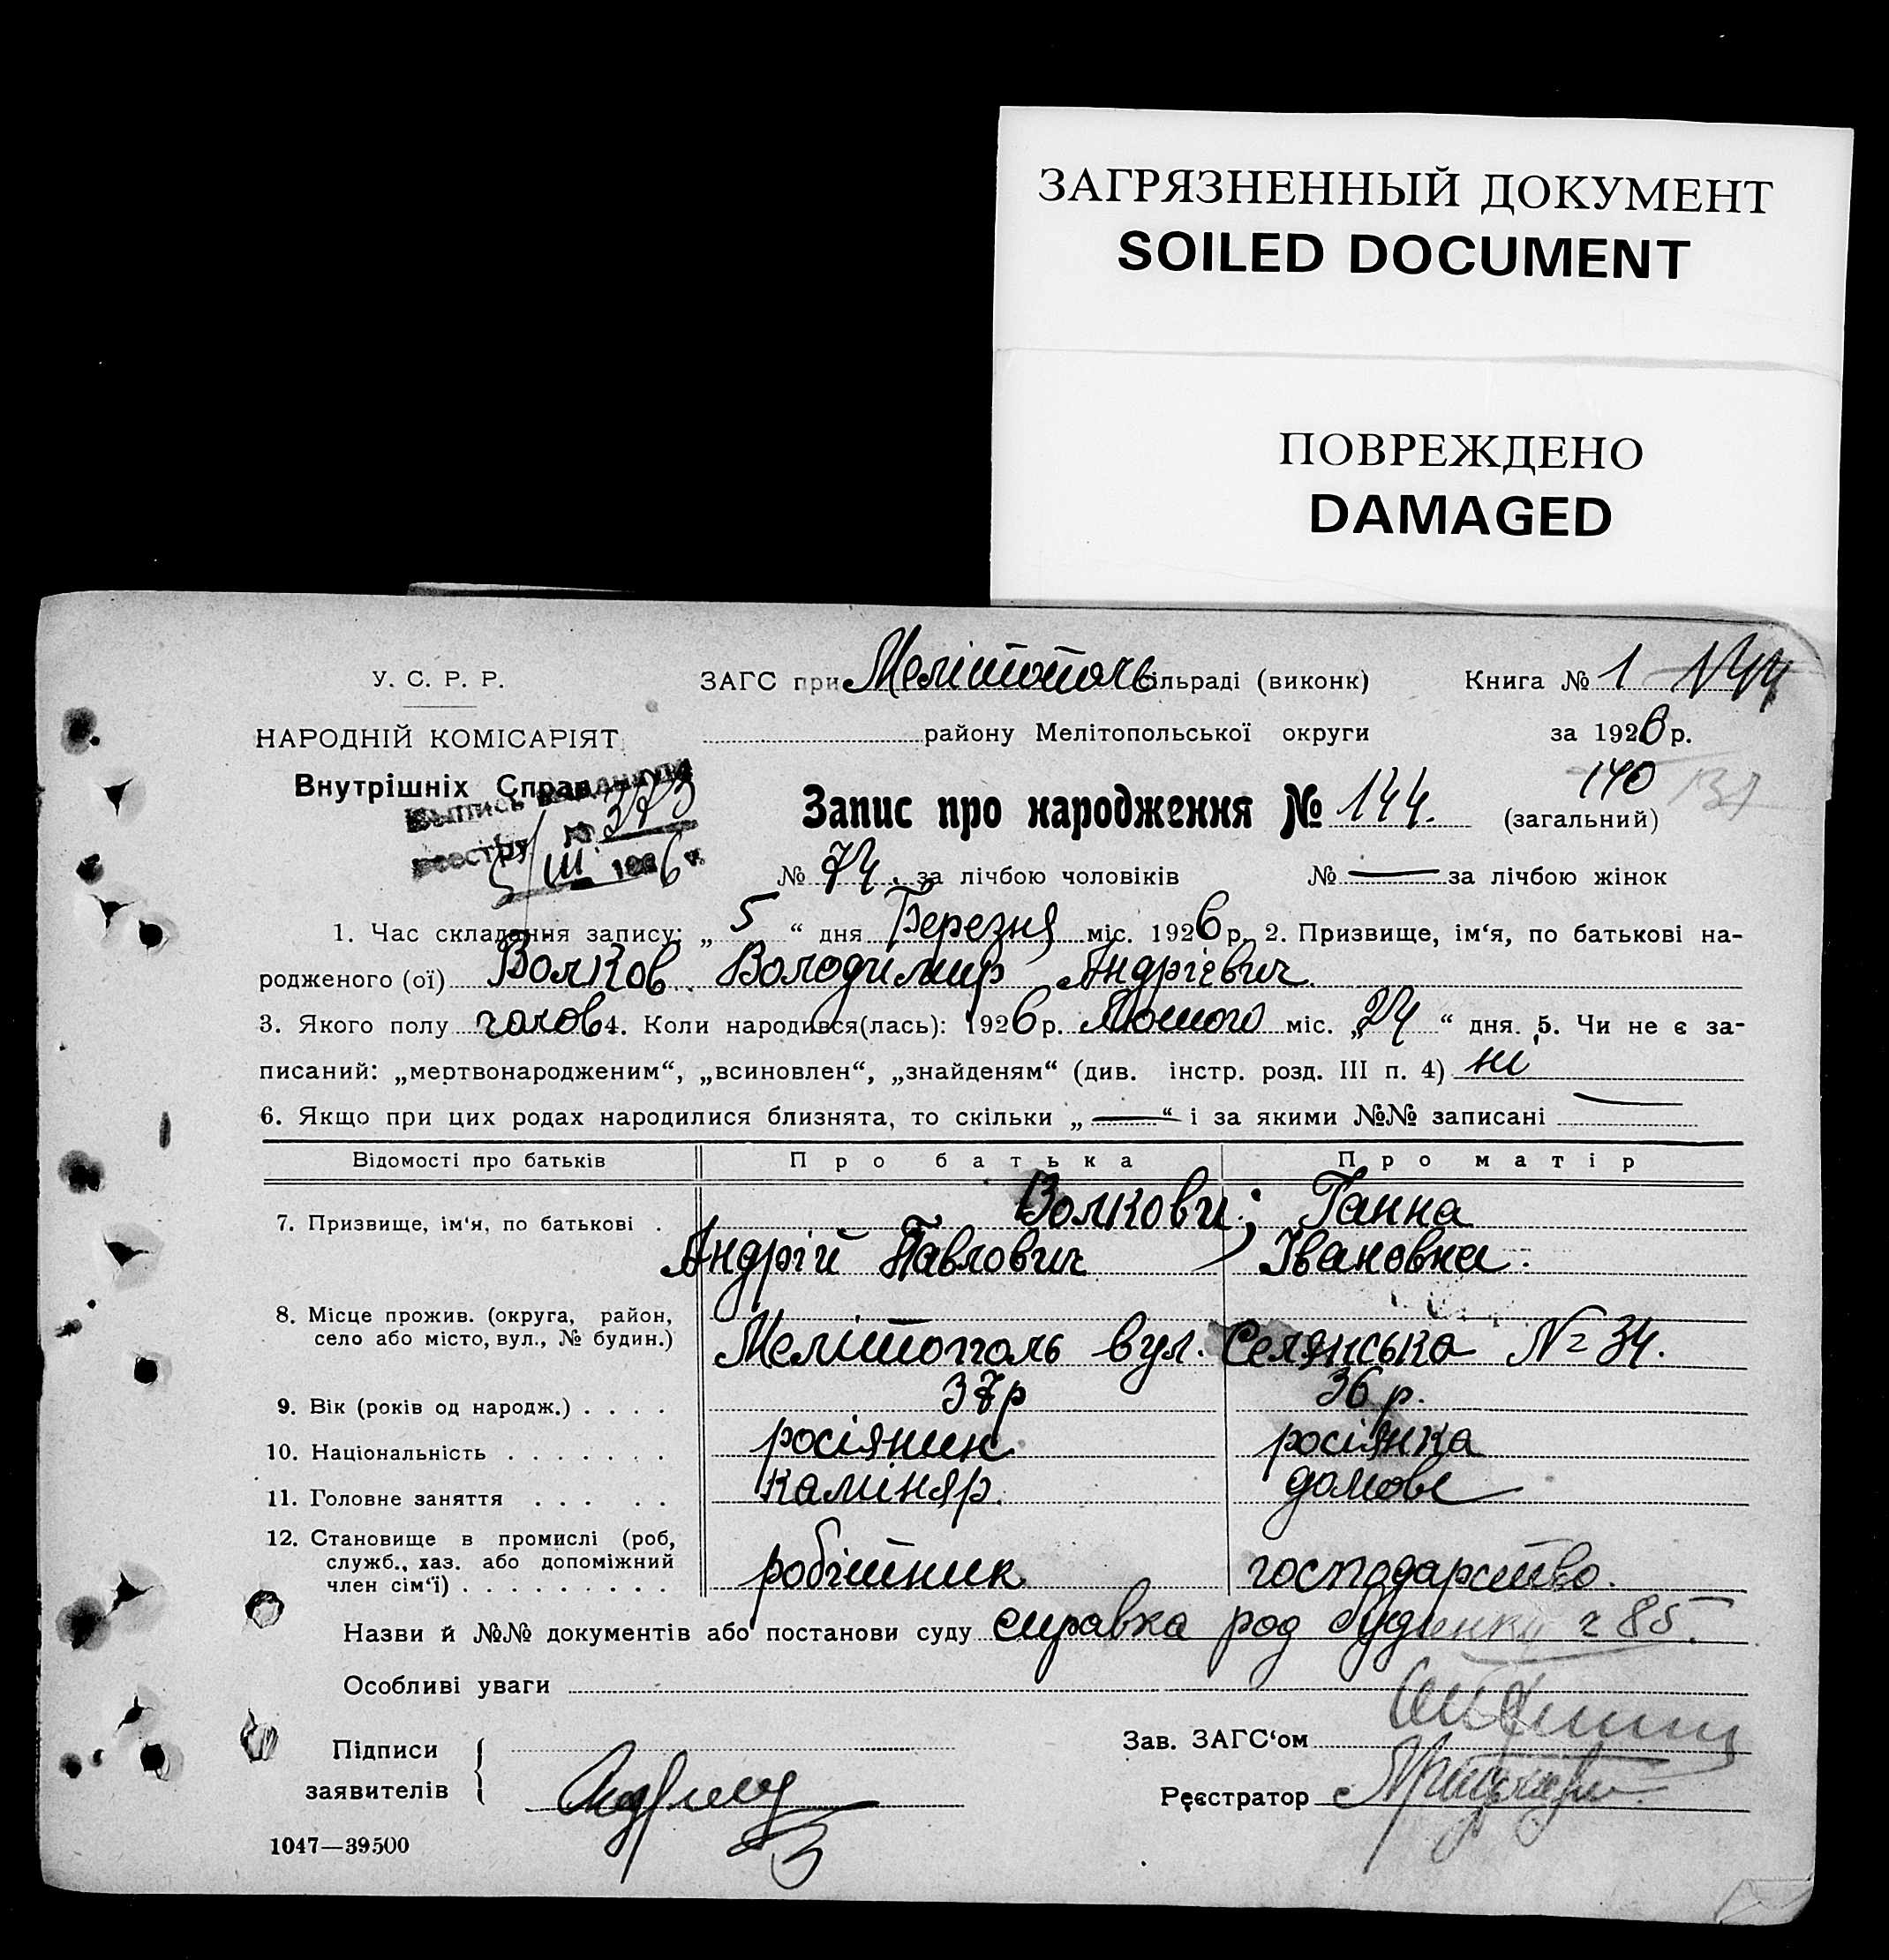 ЗАГРЯЗНЕННЫЙ ДОКУМЕНТ
SOILED DOCUMENT
ПОВРЕЖДЕНО
DAMAGED
У. С. Р. Р.
НАРОДНІЙ КОМІСАРІЯТ
Внутрішніх Справ
Выпись
реестру № 373
5/III 1926 г.
ЗАГС при Мелітополь сільраді (виконк)
Книга № 1 144
району Мелітопольської округи
за 1926 р.
140 137
Запис про народження № 144. (загальний)
№ 74. за лічбою чоловіків № — за лічбою жінок
1. Час складання запису: „ 5 “ дня Березня міс. 1926 р. 2. Призвище, ім‘я, по батькові на-
родженого (ої) Волков Володимир Андрієвич.
3. Якого полу чолов 4. Коли народився(лась): 1926 р. Лютого міс. „24“ дня. 5. Чи не є за-
писаний: „мертвонародженим“, „всиновлен“, „знайденям“ (див. інстр. розд. III п. 4) ні
6. Якщо при цих родах народилися близнята, то скільки „ — “ і за якими №№ записані —
Відомості про батьків Про батька Про матір
7. Призвище, ім‘я, по батькові . Волкови; Ганна
Андрій Павлович Івановна.
8. Місце прожив. (округа, район,
село або місто, вул., № будин.) Мелітополь вул. Селянська № 34.
9. Вік (років од народж.) . . . . 37 р 36 р.
10. Національність . . . . . . . росіянин росіянка
11. Головне заняття . . . . . каміняр. домове
12. Становище в промислі (роб,
служб., хаз. або допоміжний
член сім‘ї) . . . . . . . . . робітник господарство.
Назви й №№ документів або постанови суду справка род будинку ч 85.
Особливі уваги
Підписи
заявителів
Зав. ЗАГС‘ом
Реєстратор
1047—39500